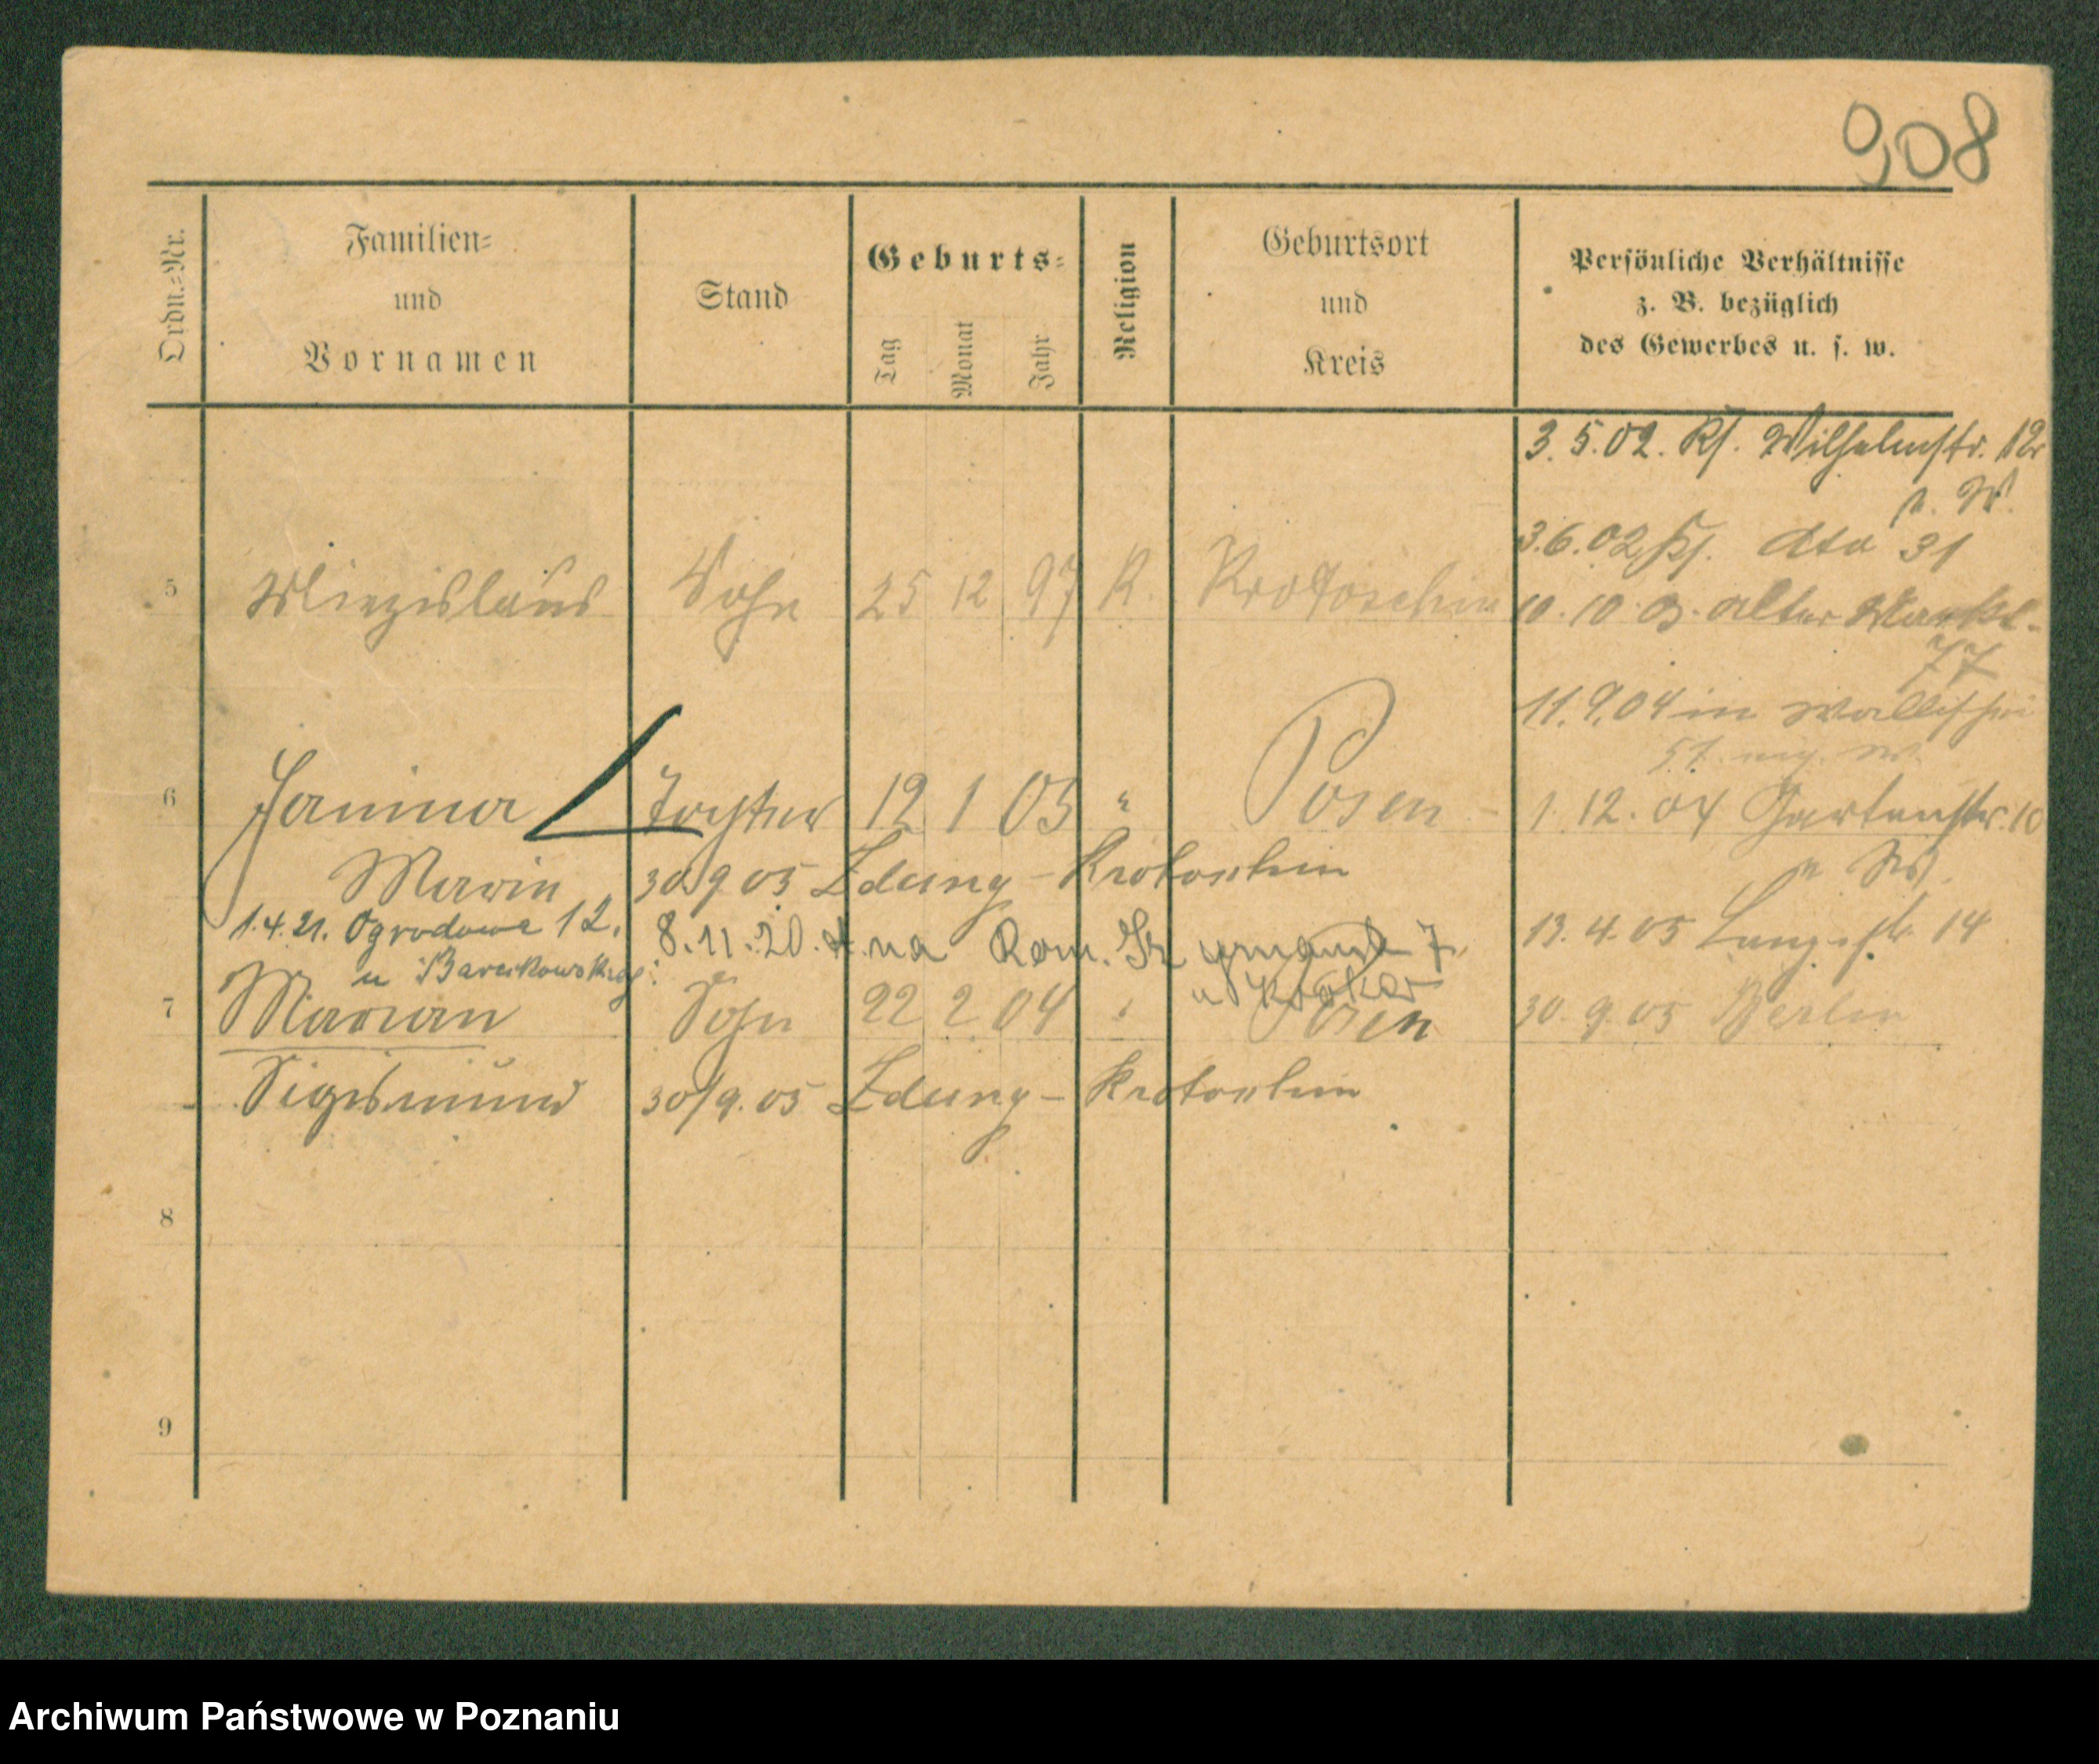 908
Ordn.-Nr.
Familien-
und
Vornamen
Stand
Geburts-
Tag
Monat
Jahr
Religion
Geburtsort
und
Kreis
Persönliche Verhältnisse
z. B. bezüglich
des Gewerbes u. s. w.
3. 5. 02. Wilhelmstr. 12
3.6.02 dto 31
5 Miezislaus Sohn 25 12 97 R. Krotoschin
10. 10. 03. Alter Markt
77
11.9.04 in Wallischei
6 Janina Tochter 12 1 03 " Posen
1. 12. 04 Gartenstr. 10
Maria 30/9 05 Zduny - Krotoschin
1.4.21. Ogrodowa 12.
u Barcikowskiego
8.11.20. na Rom. 7
13. 4. 05 Langestr. 14
7 Marian Sohn 22 2 04 " Posen
30. 9. 05 Berlin
Sigismund 30/9. 05 Zduny - Krotoschin
8
9
Archiwum Państwowe w Poznaniu